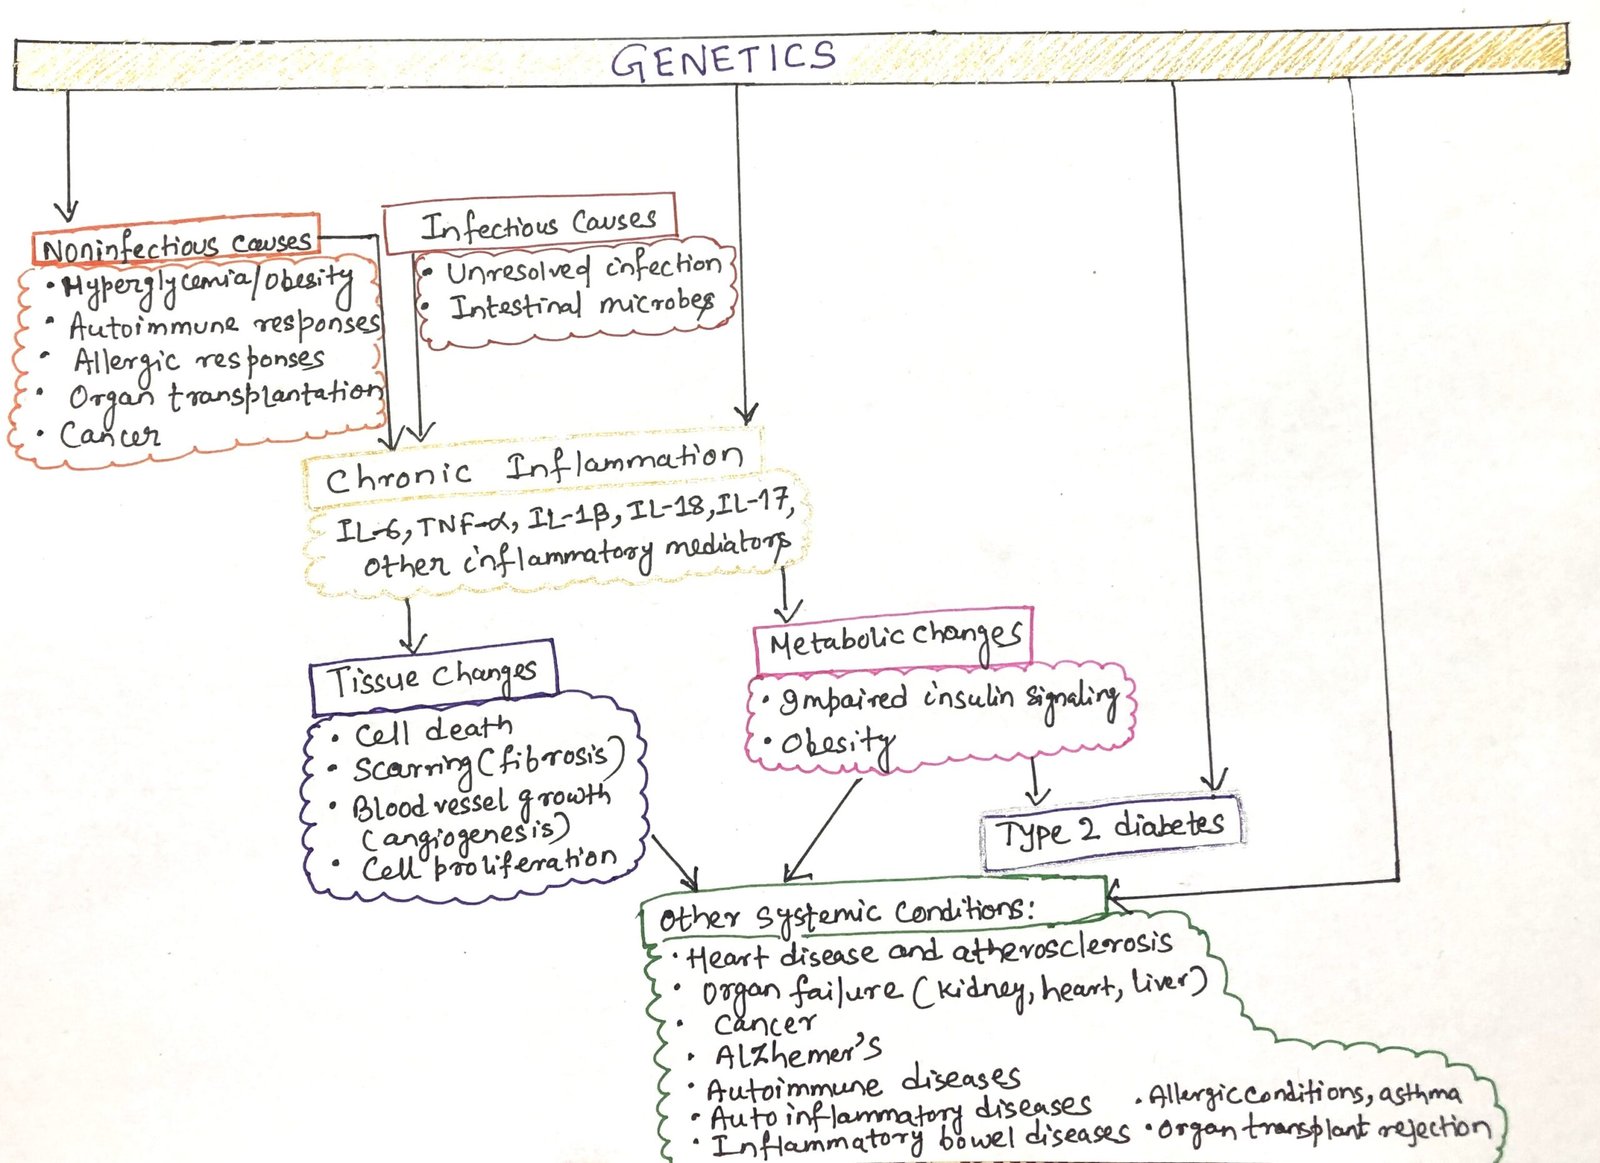 GENETICS
Noninfectious causes
• Hyperglycemia/obesity
• Autoimmune responses
• Allergic responses
• Organ transplantation
• Cancer
Infectious causes
• Unresolved infection
• Intestinal microbes
Chronic Inflammation
IL-6, TNF-α, IL-1β, IL-18, IL-17,
other inflammatory mediators
Tissue changes
• Cell death
• Scarring (fibrosis)
• Blood vessel growth
(angiogenesis)
• Cell proliferation
Metabolic changes
• Impaired insulin signaling
• Obesity
Type 2 diabetes
Other systemic conditions:
• Heart disease and atherosclerosis
• Organ failure (kidney, heart, liver)
• Cancer
• Alzhemer's
• Autoimmune diseases
• Auto inflammatory diseases
• Inflammatory bowel diseases
• Allergic conditions, asthma
• Organ transplant rejection